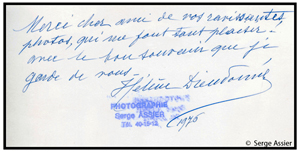 Merci cher ami de vos ravissantes
photos, qui me font tant plaisir -
avec le bon souvenir que je
garde de vous -
Hélène Dieudonné
PHOTOGRAPHIE
Serge ASSIER
1975
© Serge Assier